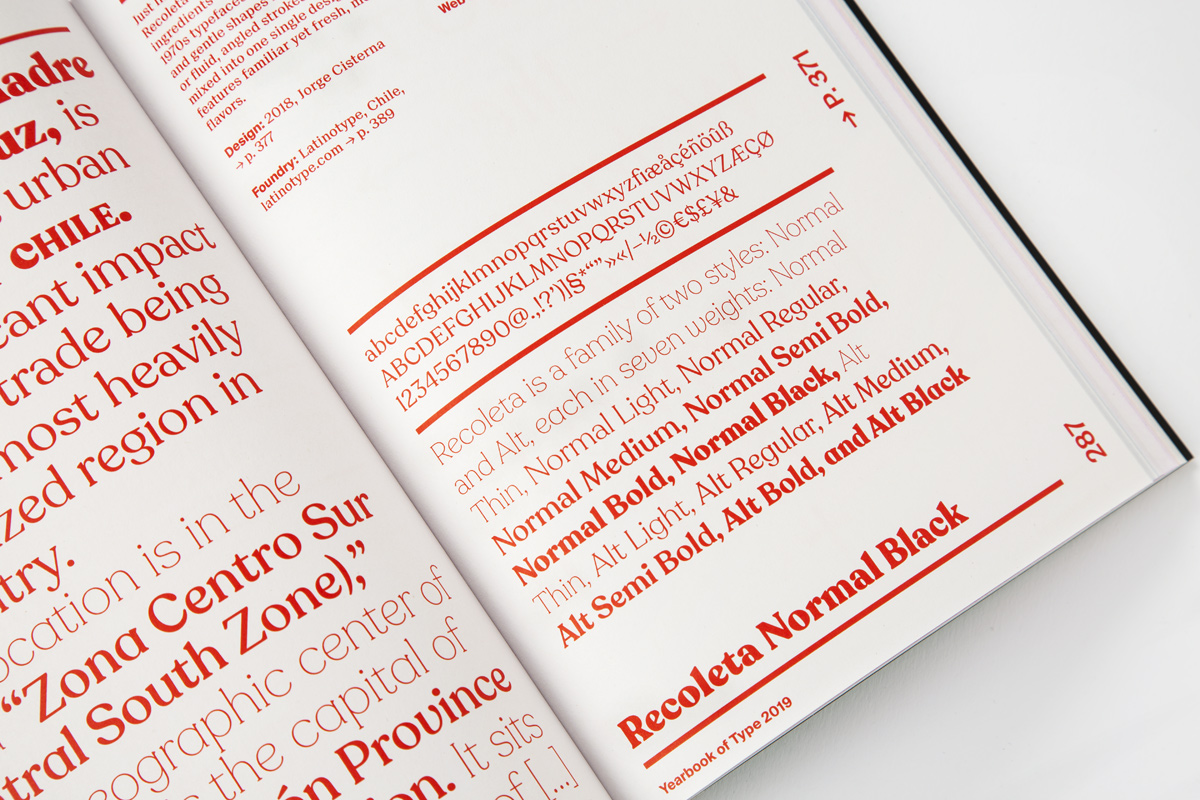 adre
uz, is
urban
CHILE.
cant impact
trade being
most heavily
zed region in
try.
ocation is in the
“Zona Centro Sur
tral South Zone),”
eographic center of
the capital of
én Province
on. It sits
of [...]
Recoleta
ingredients
1970s typefaces
and gentle shapes
or fluid, angled strokes
mixed into one single design
features familiar yet fresh,
flavors.
Design: 2018, Jorge Cisterna
→ p. 377
Foundry: Latinotype, Chile,
latinotype.com → p. 389
Web
→ P. 371
abcdefghijklmnopqrstuvwxyzfiæåçéñöûß
ABCDEFGHIJKLMNOPQRSTUVWXYZÆÇØ
1234567890@.,!?’)]§*“”»«/–½©€$£¥&
Recoleta is a family of two styles: Normal
and Alt, each in seven weights: Normal
Thin, Normal Light, Normal Regular,
Normal Medium, Normal Semi Bold,
Normal Bold, Normal Black, Alt
Thin, Alt Light, Alt Regular, Alt Medium,
Alt Semi Bold, Alt Bold, and Alt Black
287
Recoleta Normal Black
Yearbook of Type 2019